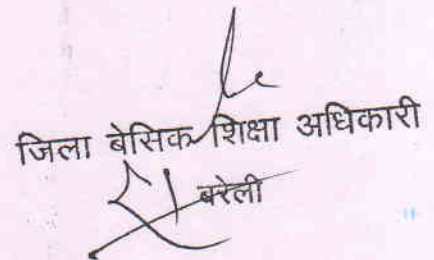 जिला बेसिक शिक्षा अधिकारी
बरेली